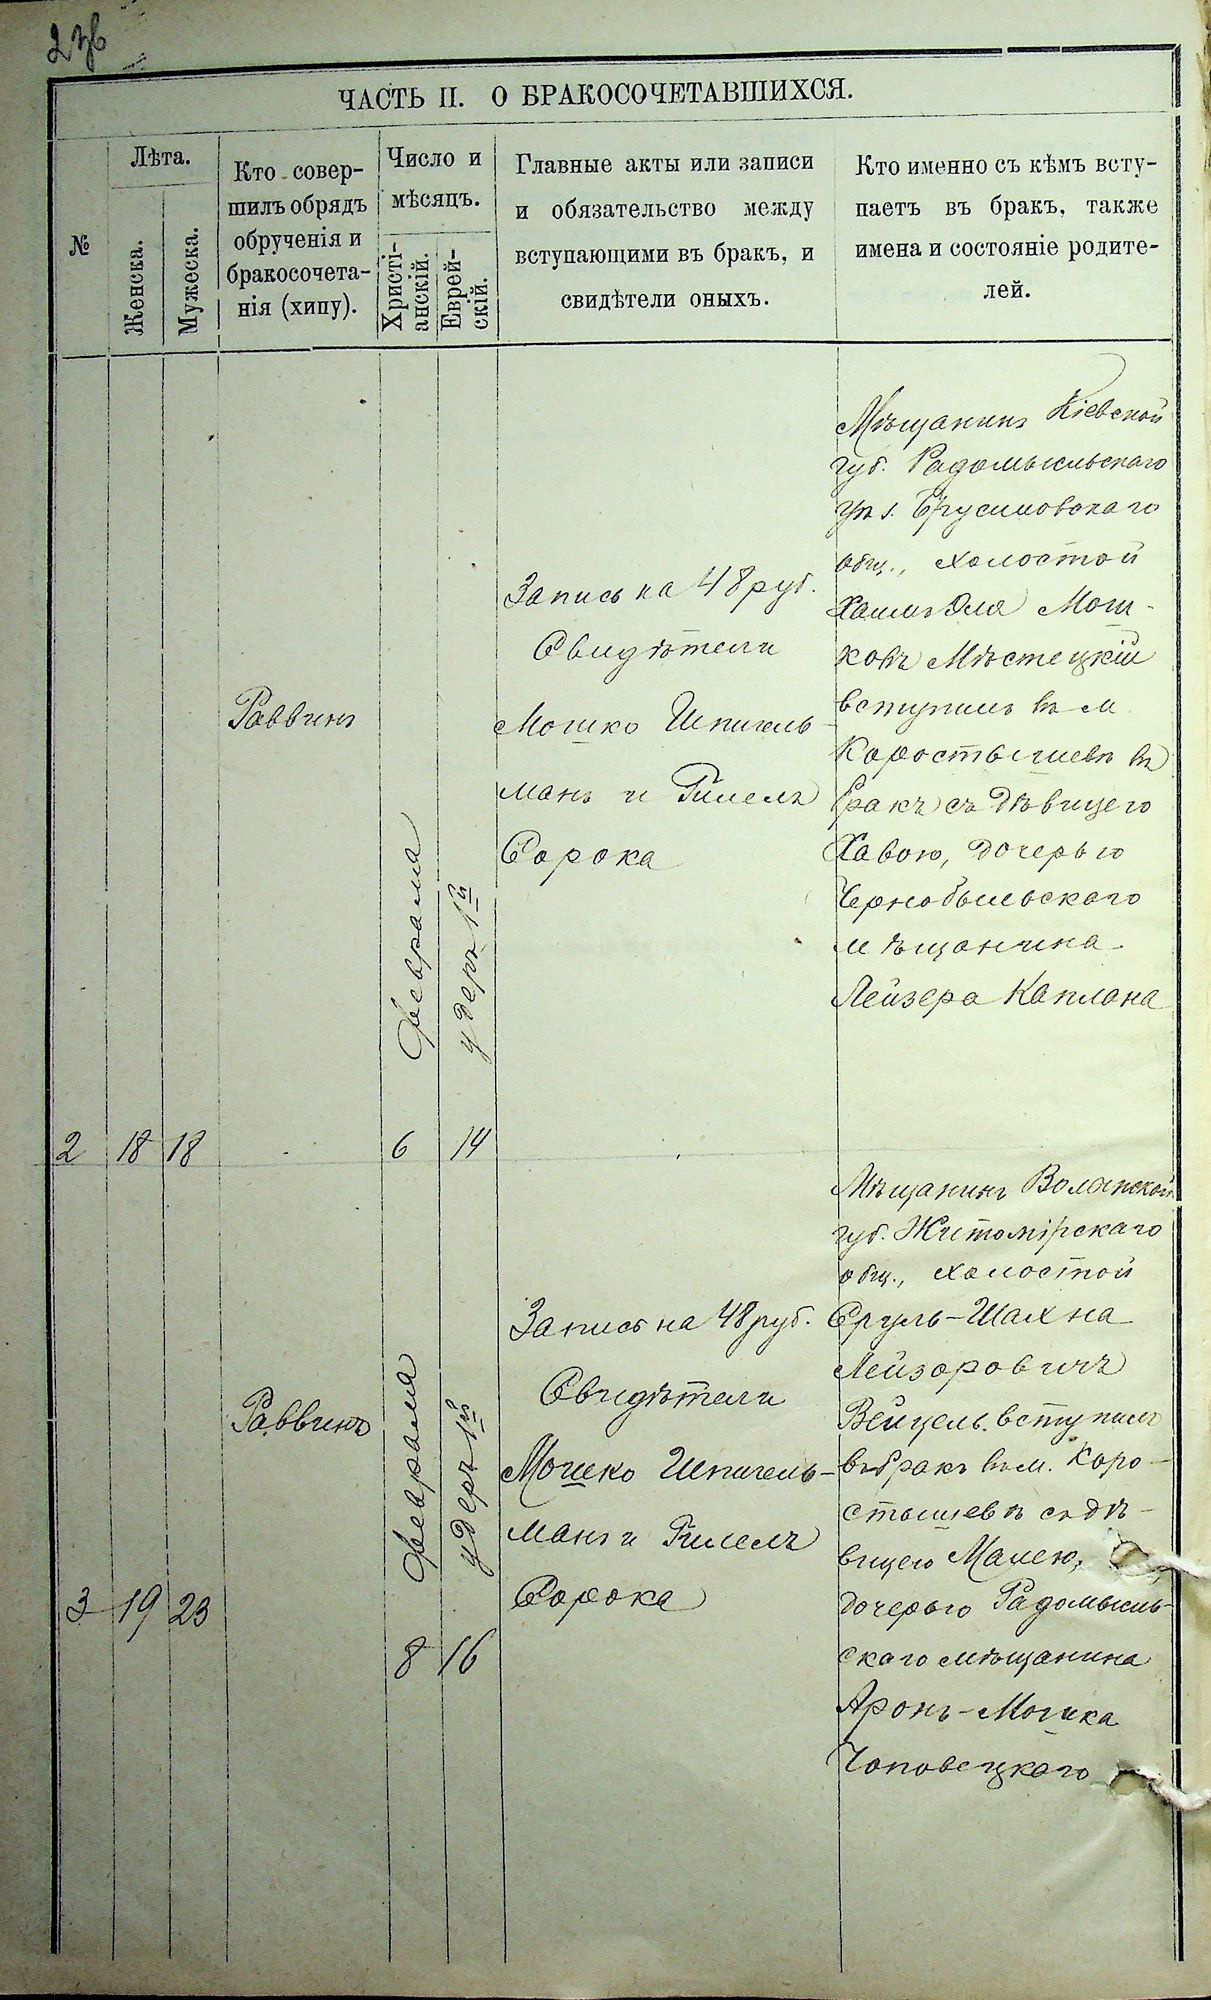 236
ЧАСТЬ II. О БРАКОСОЧЕТАВШИХСЯ.
№
Лѣта.
Женска.
Мужеска.
Кто совер-
шилъ обрядъ
обрученія и
бракосочета-
нія (хипу).
Число и
мѣсяцъ.
Христі-
анскій.
Еврей-
скій.
Главные акты или записи
и обязательство между
вступающими въ бракъ, и
свидѣтели оныхъ.
Кто именно съ кѣмъ всту-
паетъ въ бракъ, также
имена и состояніе родите-
лей.
2
18
18
Раввинъ
Февраля
6
Адеръ 1й
14
Запись на 48 руб.
Свидѣтели
Мошко Шпигель-
манъ и Гилель
Сорока
Мѣщанинъ Кіевской
губ. Радомысльскаго
уѣз. Брусиловскаго
общ., холостой
Мош-
ковъ Мѣстецкій
вступилъ въ м.
Коростышевѣ въ
бракъ съ дѣвицею
Хавою, дочерью
Чернобыльскаго
мѣщанина
Лейзера Каплана
3
19
23
Раввинъ
Февраля
8
Адеръ 1й
16
Запись на 48 руб.
Свидѣтели
Мошко Шпигель-
манъ и Гилель
Сорока
Мѣщанинъ Волынской
губ. Житомірскаго
общ., холостой
Сруль-Шахна
Лейзоровичъ
Вейцель вступилъ
въ бракъ въ м. Коро-
стышевѣ съ дѣ-
вицею Малею,
дочерью Радомысль-
скаго мѣщанина
Аронъ-Мошка
Чоповецкаго